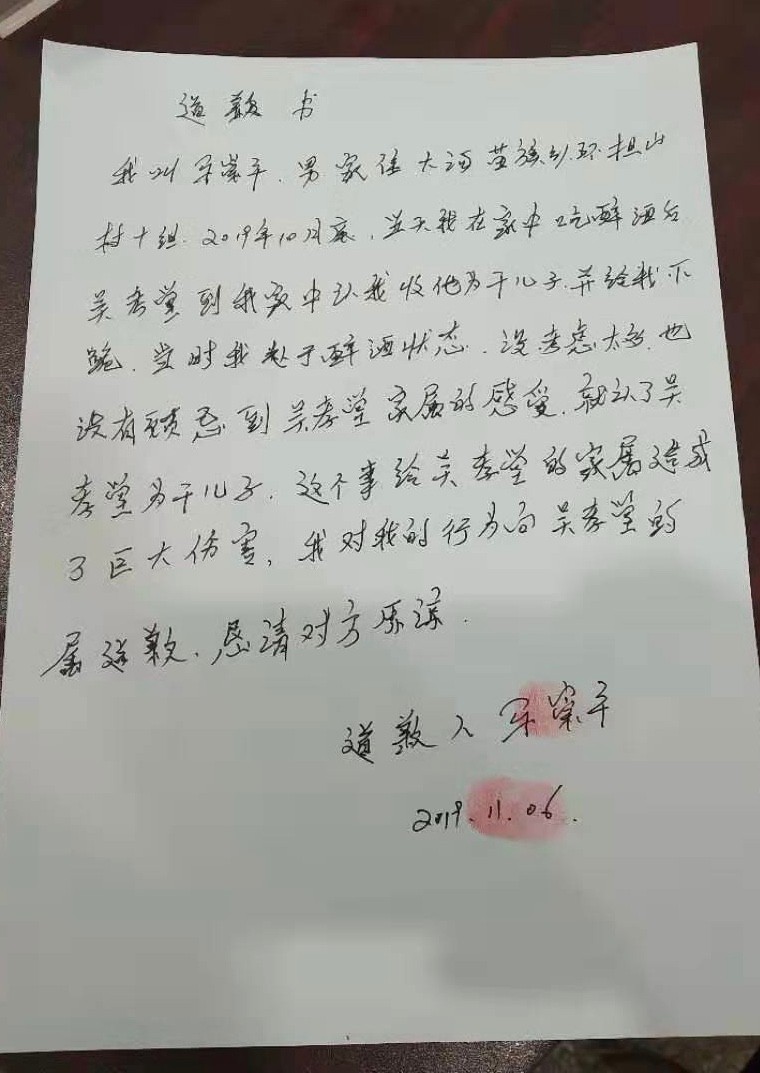 道歉书
我叫荣平、男 家住大河苗族乡环担山
村十组.2019年10月底,当天我在家中吃醉酒后
吴孝堂到我家中认我收他为干儿子.并给我下
跪、当时我处于醉酒状态、没考虑太多、也
没有顾忌到吴孝堂家属的感受、就认了吴
孝堂为干儿子、这个事给吴孝堂的家属造成
了巨大伤害,我对我的行为向吴孝堂的
属道歉、恳请对方原谅.
道歉人 平
2019.11.06.